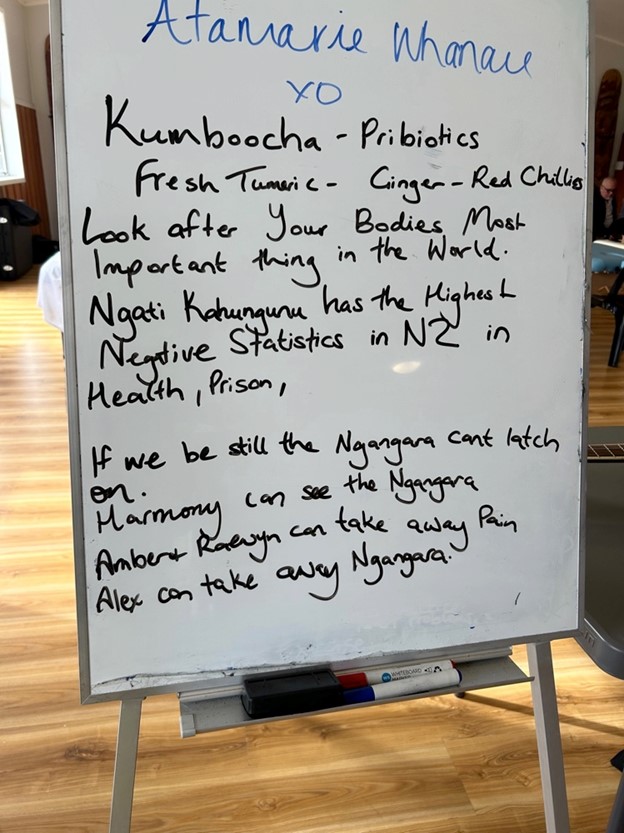 Atamarie Whanau
XO
Kumboocha - Pribiotics
Fresh Tumeric - Ginger - Red Chillies
Look after Your Bodies Most
Important thing in the World.
Ngati Kahungunu has the Highest
Negtive Statistics in NZ in
Health, Prison,
If we be still the Ngangara cant latch
on.
Harmony can see the Ngangara
Amber + Raewyn can take away Pain
Alex can take away Ngangara.
WHITEBOARD
MARKER